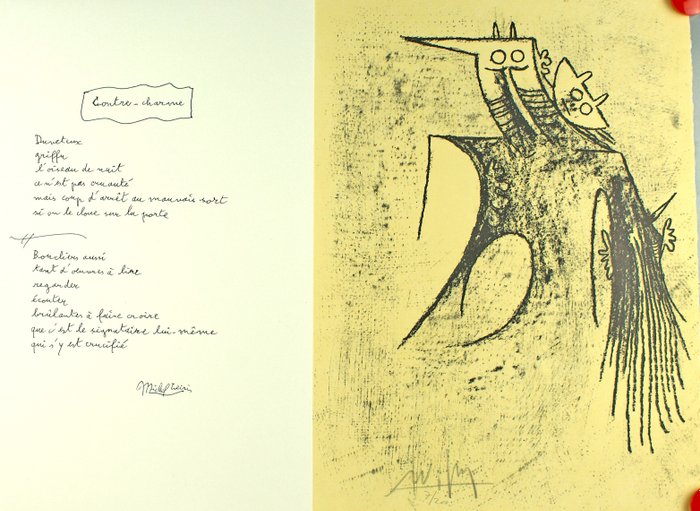 Contre-charme
Duveteux
griffu
l'oiseau de nuit
ce n'est pas cruauté
mais coup d'arrêt au mauvais sort
si on le cloue sur la porte
Boucliers aussi
tant d'œuvres à lire
regarder
écouter
brûlantes à faire croire
que c'est le signataire lui-même
qui s'y est crucifié
Michel Leiris